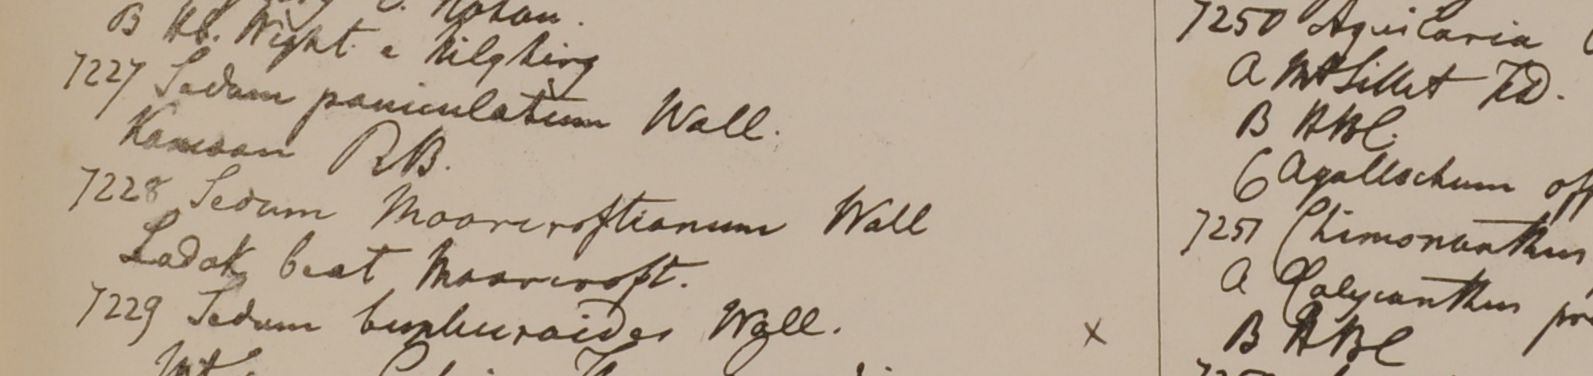 B Hb. Wight. e Nilghirry
7227 Sedum paniculatum Wall.
Kamaon R.B.
7228 Sedum Moorcroftianum Wall
Ladak beat Moorcroft.
7229 Sedum bupluroides Wall.
x
7250 Aquilaria
a Mt Sillet F.D.
B HBC.
C Agallochum off
7251 Chimonanthus
a Calycanthus
B HBC